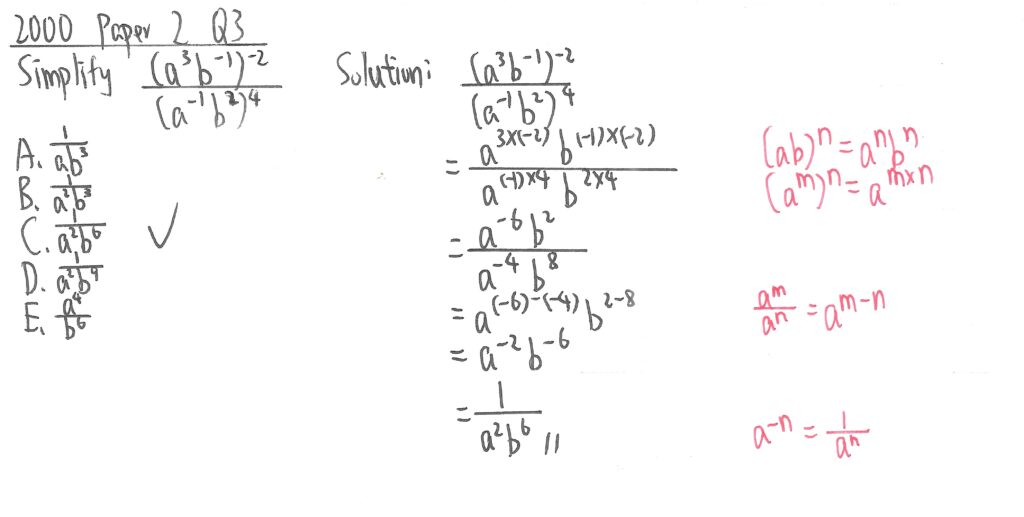 2000 Paper 2 Q3
Simplify (a³b⁻¹)⁻² / (a⁻¹b²)⁴
A. 1/ab³
B. 1/a²b³
C. 1/a²b⁶ ✓
D. 1/a²b⁴
E. a⁴/b⁶
Solution: (a³b⁻¹)⁻² / (a⁻¹b²)⁴
= a^(3×(-2)) b^((-1)×(-2)) / a^((-1)×4) b^(2×4)
= a⁻⁶b² / a⁻⁴b⁸
= a^((-6)-(-4)) b^(2-8)
= a⁻²b⁻⁶
= 1/a²b⁶ //
(ab)ⁿ = aⁿbⁿ
(aᵐ)ⁿ = a^(m×n)
aᵐ/aⁿ = a^(m-n)
a⁻ⁿ = 1/aⁿ